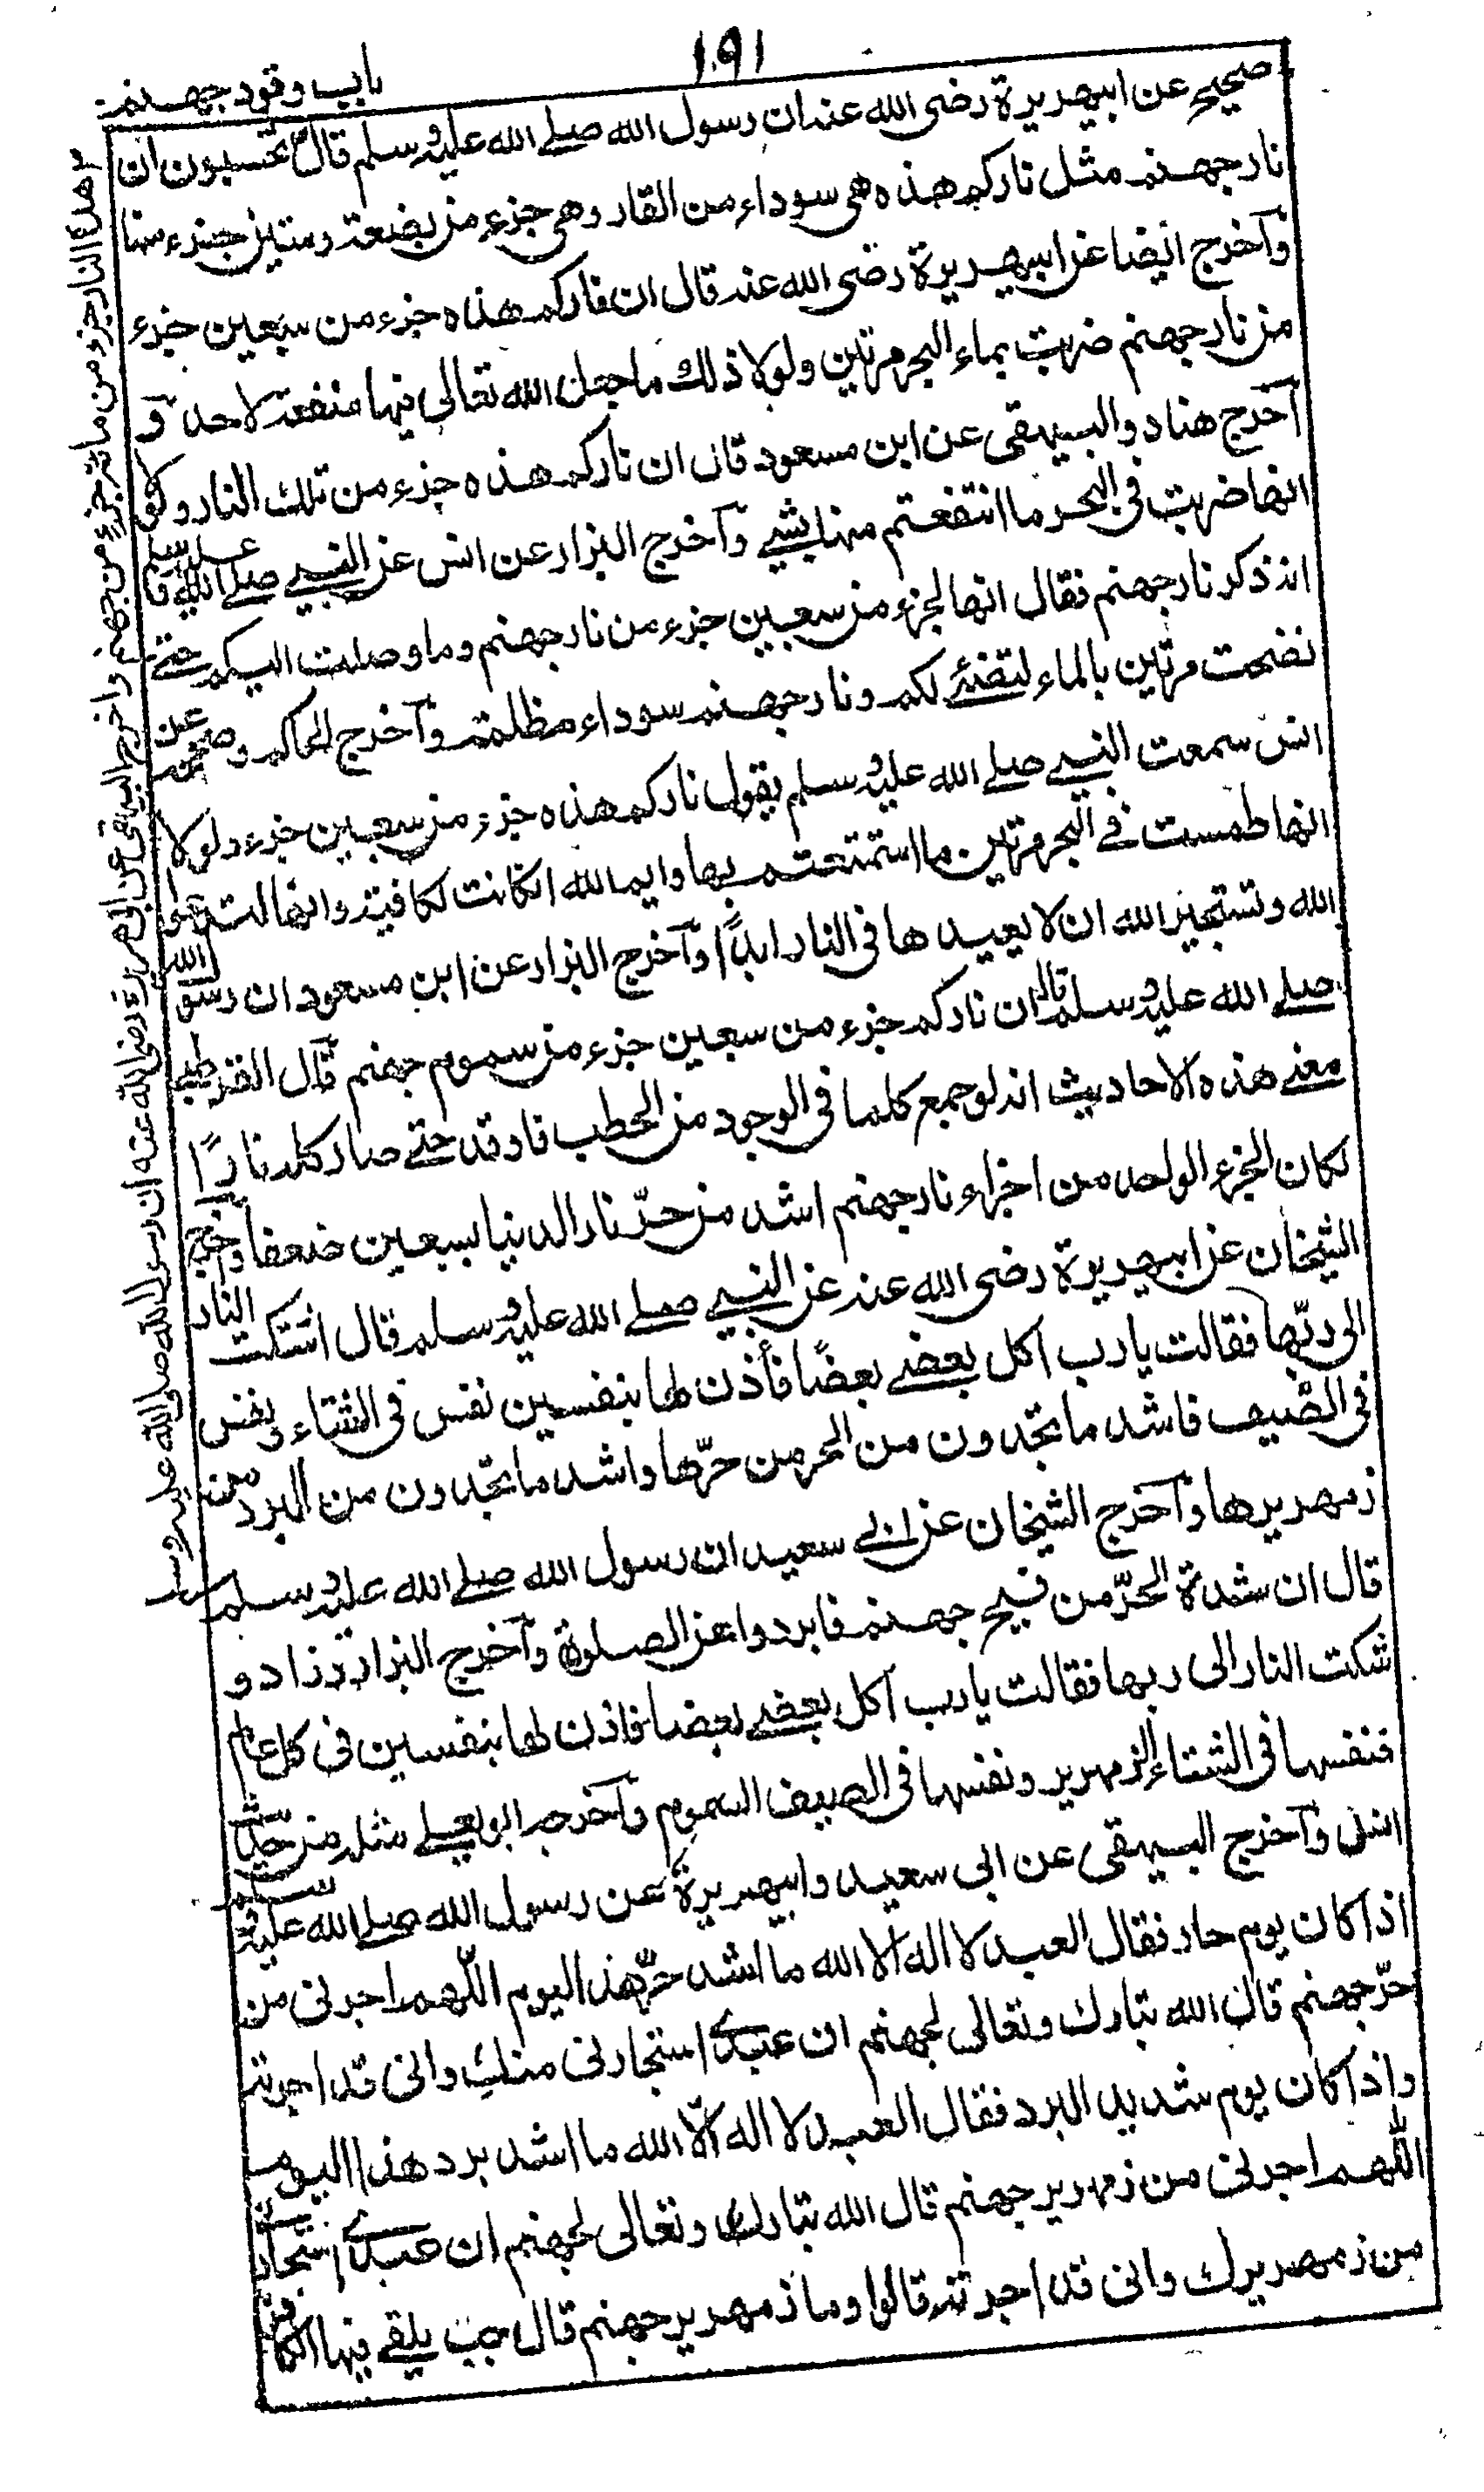 ١٩١
باب وقود جهنم
صحيح عن ابيهريرة رضى الله عنه ان رسول الله صلے الله عليه وسلم قال تحسبون ان
نار جهنم مثل ناركم هذه هى سوداء من القار وهى جزء من بضعة وستين جزء منها
وآخرج ايضا عن ابيهريرة رضى الله عنه قال ان ناركم هذه جزء من سبعين جزء
من نار جهنم ضربت بماء البحر مرتين ولولا ذلك ما جعل الله تعالى فيها منفعة لاحد و
آخرج هناد والبيهقى عن ابن مسعود قال ان ناركم هذه جزء من تلك النار ولولا
انها ضربت فى البحر ما انتفعتم منها بشيے وآخرج البزار عن انس عن النبيے صلے الله عليه وسلم
انه ذكر نار جهنم فقال انها لجزء من سبعين جزء من نار جهنم وما وصلت اليكم حتے
نضحت مرتين بالماء لتضئ لكم ونار جهنم سوداء مظلمة وآخرج الحاكم وصححه عن
انس سمعت النبيے صلے الله عليه وسلم يقول ناركم هذه جزء من سبعين جزء ولولا
انها طمست فے البحر مرتين ما استمتعتم بها وايم الله ان كانت لكافية وانها لتدعو
الله وتستجير الله ان لا يعيدها فى النار ابدًا وآخرج البزار عن ابن مسعود ان رسول الله
صلے الله عليه وسلم قال ان ناركم جزء من سبعين جزء من سموم جهنم قال القرطبے
معنے هذه الاحاديث انه لو جمع كلما فى الوجود من الحطب فاوقد حتے صار كله نارًا
لكان الجزء الواحد من اجزاء نار جهنم اشد من حرّ نار الدنيا بسبعين ضعفا وآخرج
الشيخان عن ابيهريرة رضى الله عنه عن النبيے صلے الله عليه وسلم قال اشتكت النار
الى ربّها فقالت يا رب اكل بعضے بعضًا فأذن لها بنفسين نفس فى الشتاء ونفس
فى الصّيف فاشد ما تجدون من الحر من حرّها واشد ما تجدون من البرد من
زمهريرها وآخرج الشيخان عن ابے سعيد ان رسول الله صلے الله عليه وسلم
قال ان شدة الحرّ من فيح جهنم فابردوا عن الصلوة وآخرج البزار وزاد و
شكت النار الى ربها فقالت يا رب آكل بعضے بعضا فاذن لها بنفسين فى كل عام
فنفسها فى الشتاء الزمهرير ونفسها فى الصيف السموم وآخرجه ابو يعلے مثله من حديث
انس وآخرج البيهقى عن ابى سعيد وابيهريرة عن رسول الله صلے الله عليه وسلم
اذا كان يوم حار فقال العبد لا اله الا الله ما اشد حرّ هذا اليوم اللّهم اجرنى من
حرّ جهنم قال الله تبارك وتعالى لجهنم ان عبدے استجارنى منك وانى قد اجرته
واذا كان يوم شديد البرد فقال العبد لا اله الّا الله ما اشد برد هذا اليوم
اللّهم اجرنى من زمهرير جهنم قال الله تبارك وتعالى لجهنم ان عبدے استجار
من زمهريرك وانى قد اجرته قالوا وما زمهرير جهنم قال جب يلقے فيها الكافر
هذه النار جزو من مائة جزء من جهنم واخرج البيهقى عن ابى هريرة رضى الله عنه ان رسول الله صلى الله عليه وسلم